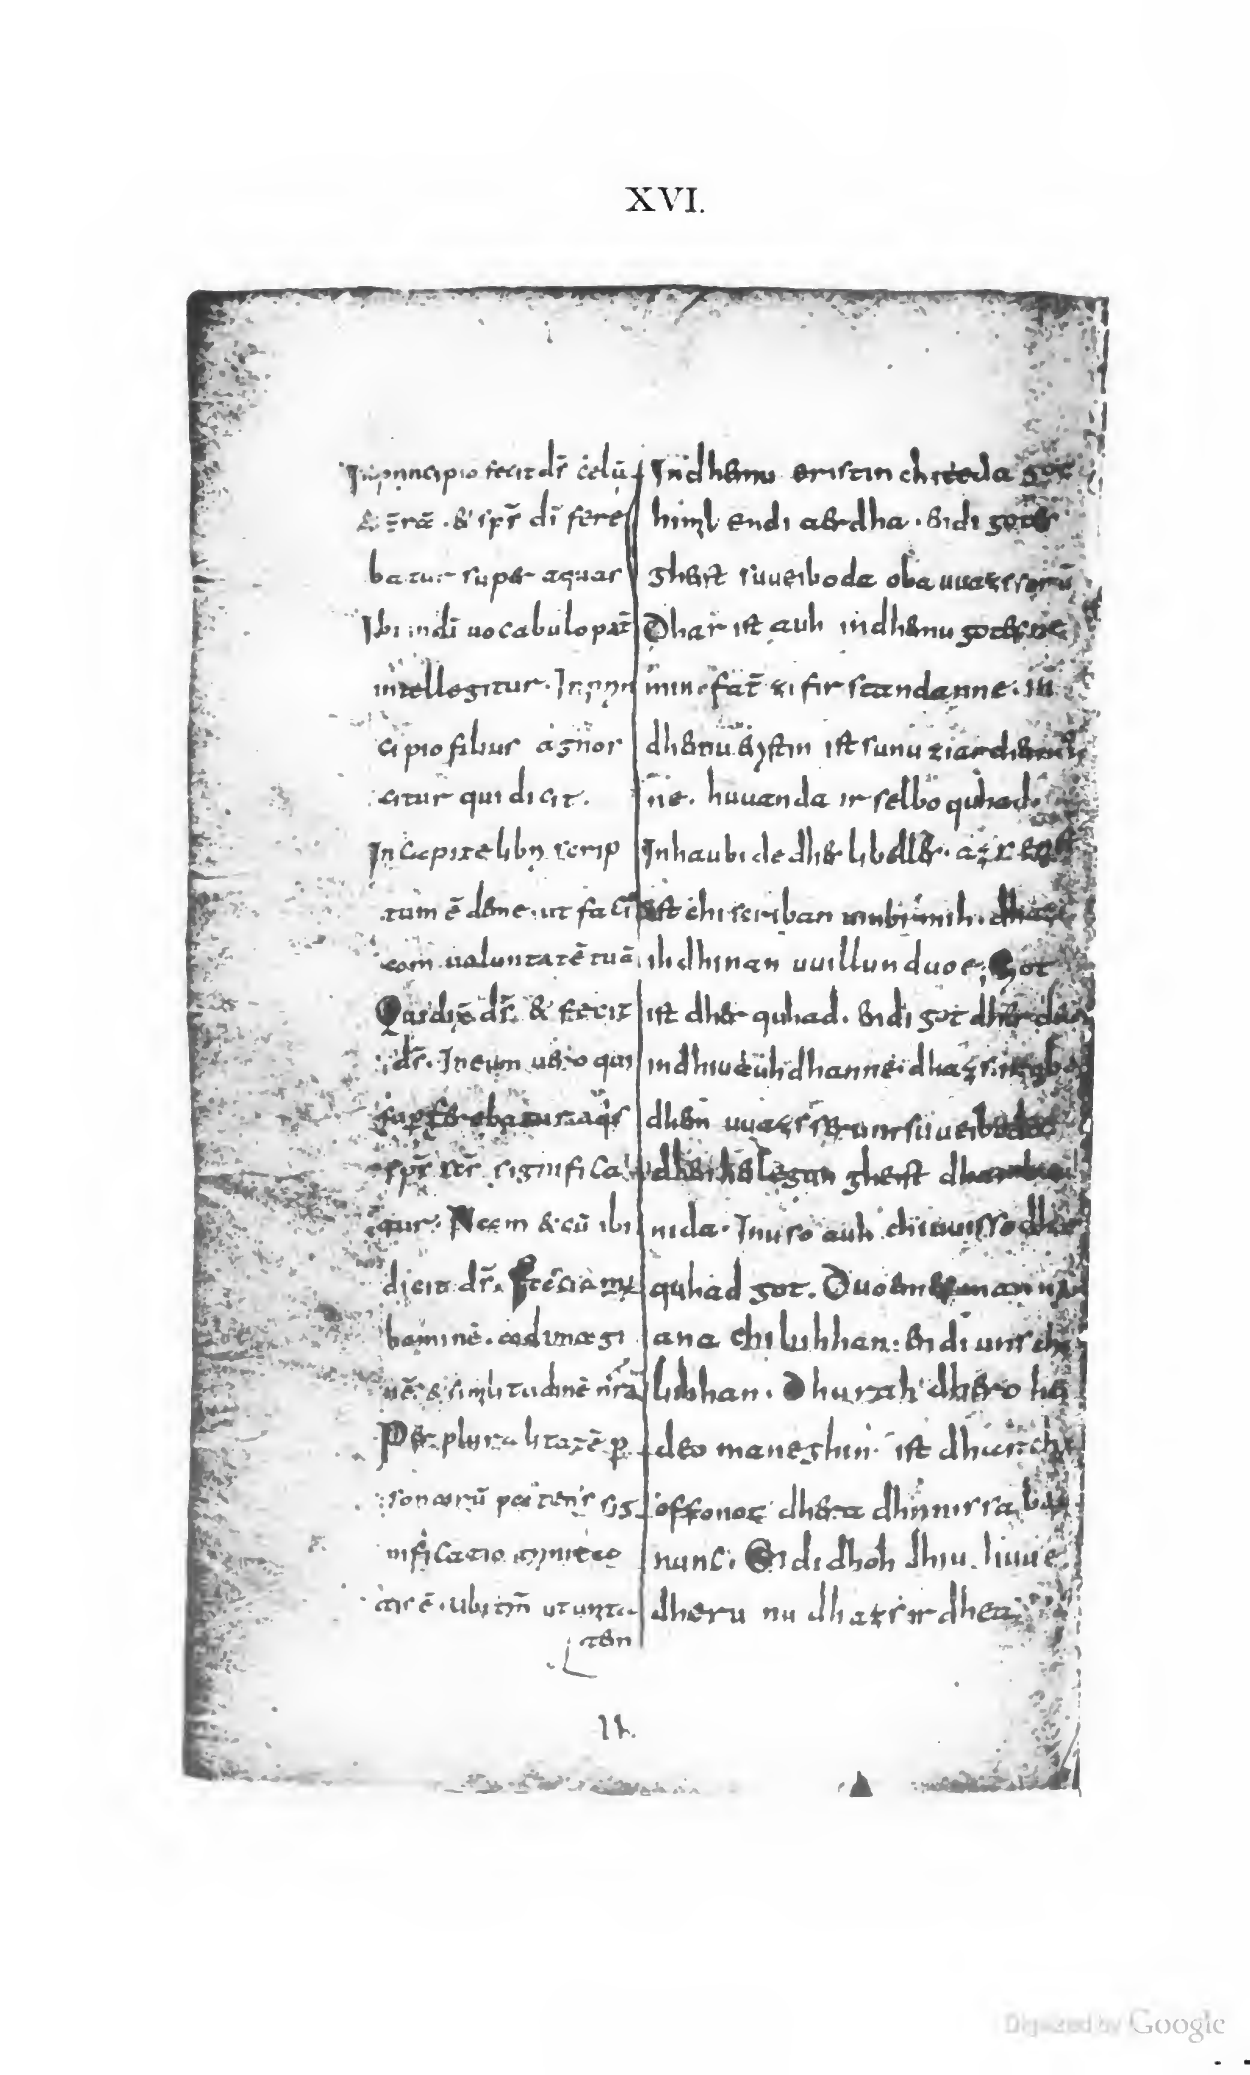 XVI.
In principio fecit dr̄ celū
& t̄rā . & spr̄ dī fere
batur super aquas
Ibi in dī uocabulo pat̄
intellegitur. In prin
cipio filius agnos
citur qui dicit.
In capite libri scrip
tum ē de me . ut faci
am uoluntatē tuā
Qui dix̄ dr̄. & fecit
dr̄. In eum uero qui
sup̄ferebatur aqis
spr̄ scr̄ significa
tur. Nam & cū ibi
dicit dr̄.
hominē . ad imagi
nē & similitudinē nr̄ā
Per pluralitatē p̱
sonarū patens sig
nificatio trinit
atis ē . ubi tm̄ ut unita
tem
In dhemu eristin chiteda got
himil endi aerdha . endi gotes
gheist suueiboda oba uuazsserū
Dhar ist auh in dhemu gotes ne
min fat̄ zi firstandanne. In
dhemu eristin ist sunu zi archenn
ne. huuanda ir selbo quhad.
In haubide dhes libelles. azs erist
ist chiscriban umbi mih. dhazs
ih dhinan uuillun duoe; Got
ist dher quhad. endi got dher da
in dhiu auh dhanne dhazs ir oba
dhem uuazsserum suueiboda
dhen heilegan gheist dhar
nida. Inu so auh chiuuisso dhar
quhad got. Duoemes mannan
ana chiliihhan: endi uns chi
liihhan. Dhurah dhero he
deo maneghin. ist dhar chi
offonot dhera dhrinissa bau
nunc. Endi dhoh dhiu huue
dheru nu dhazs ir dhea
11.
Digitized by Google